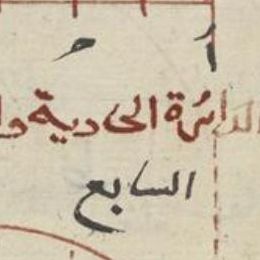 الدائرة الحادية
السابع